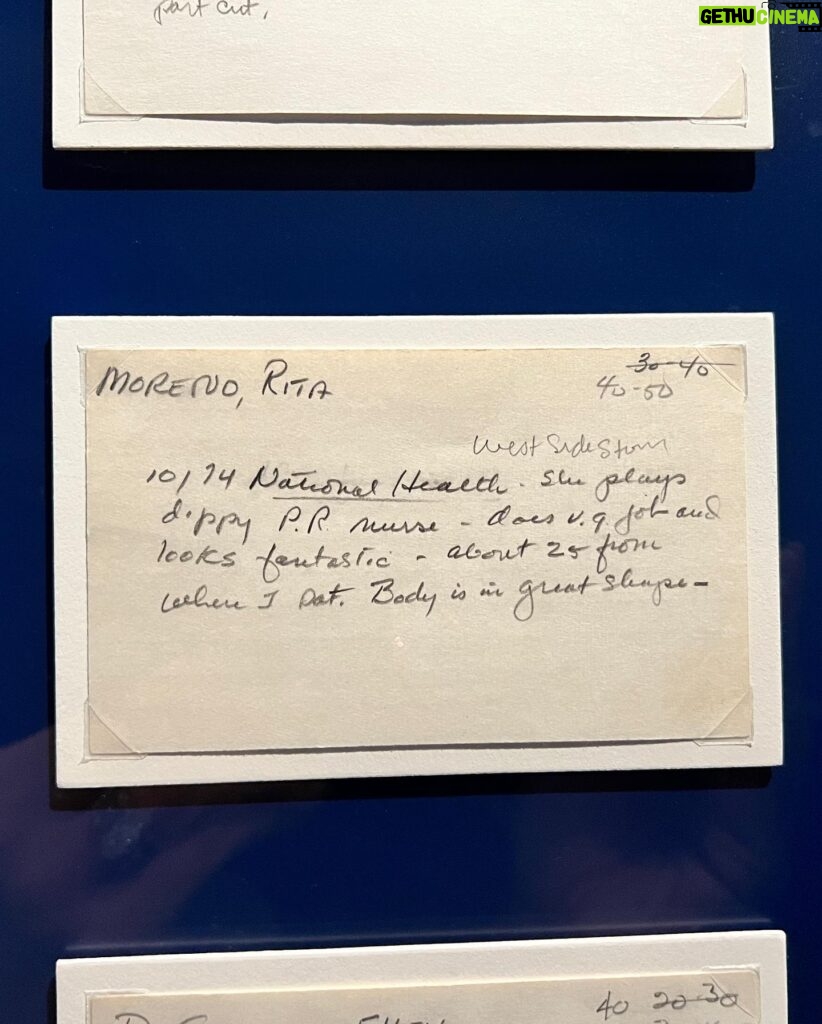 part cut,
GETHUCINEMA
MORENO, RITA
30-40
40-50
West Side Story
10/74 National Health. She plays
dippy P.R. nurse - does v.g job and
looks fantastic - about 25 from
where I sat. Body is in great shape-
40 20-30